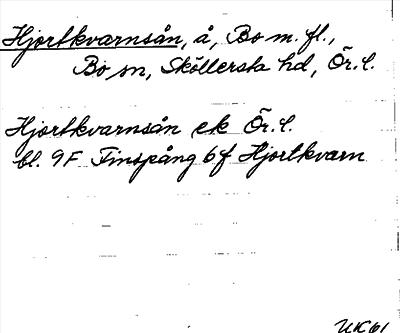 Hjortkvarnsån, å, Bo m. fl.,
Bo sn, Sköllersta hd, Ör. l.
Hjortkvarnsån ek Ör. l.
bl. 9F Finspång 6f Hjortkvarn
UK 61